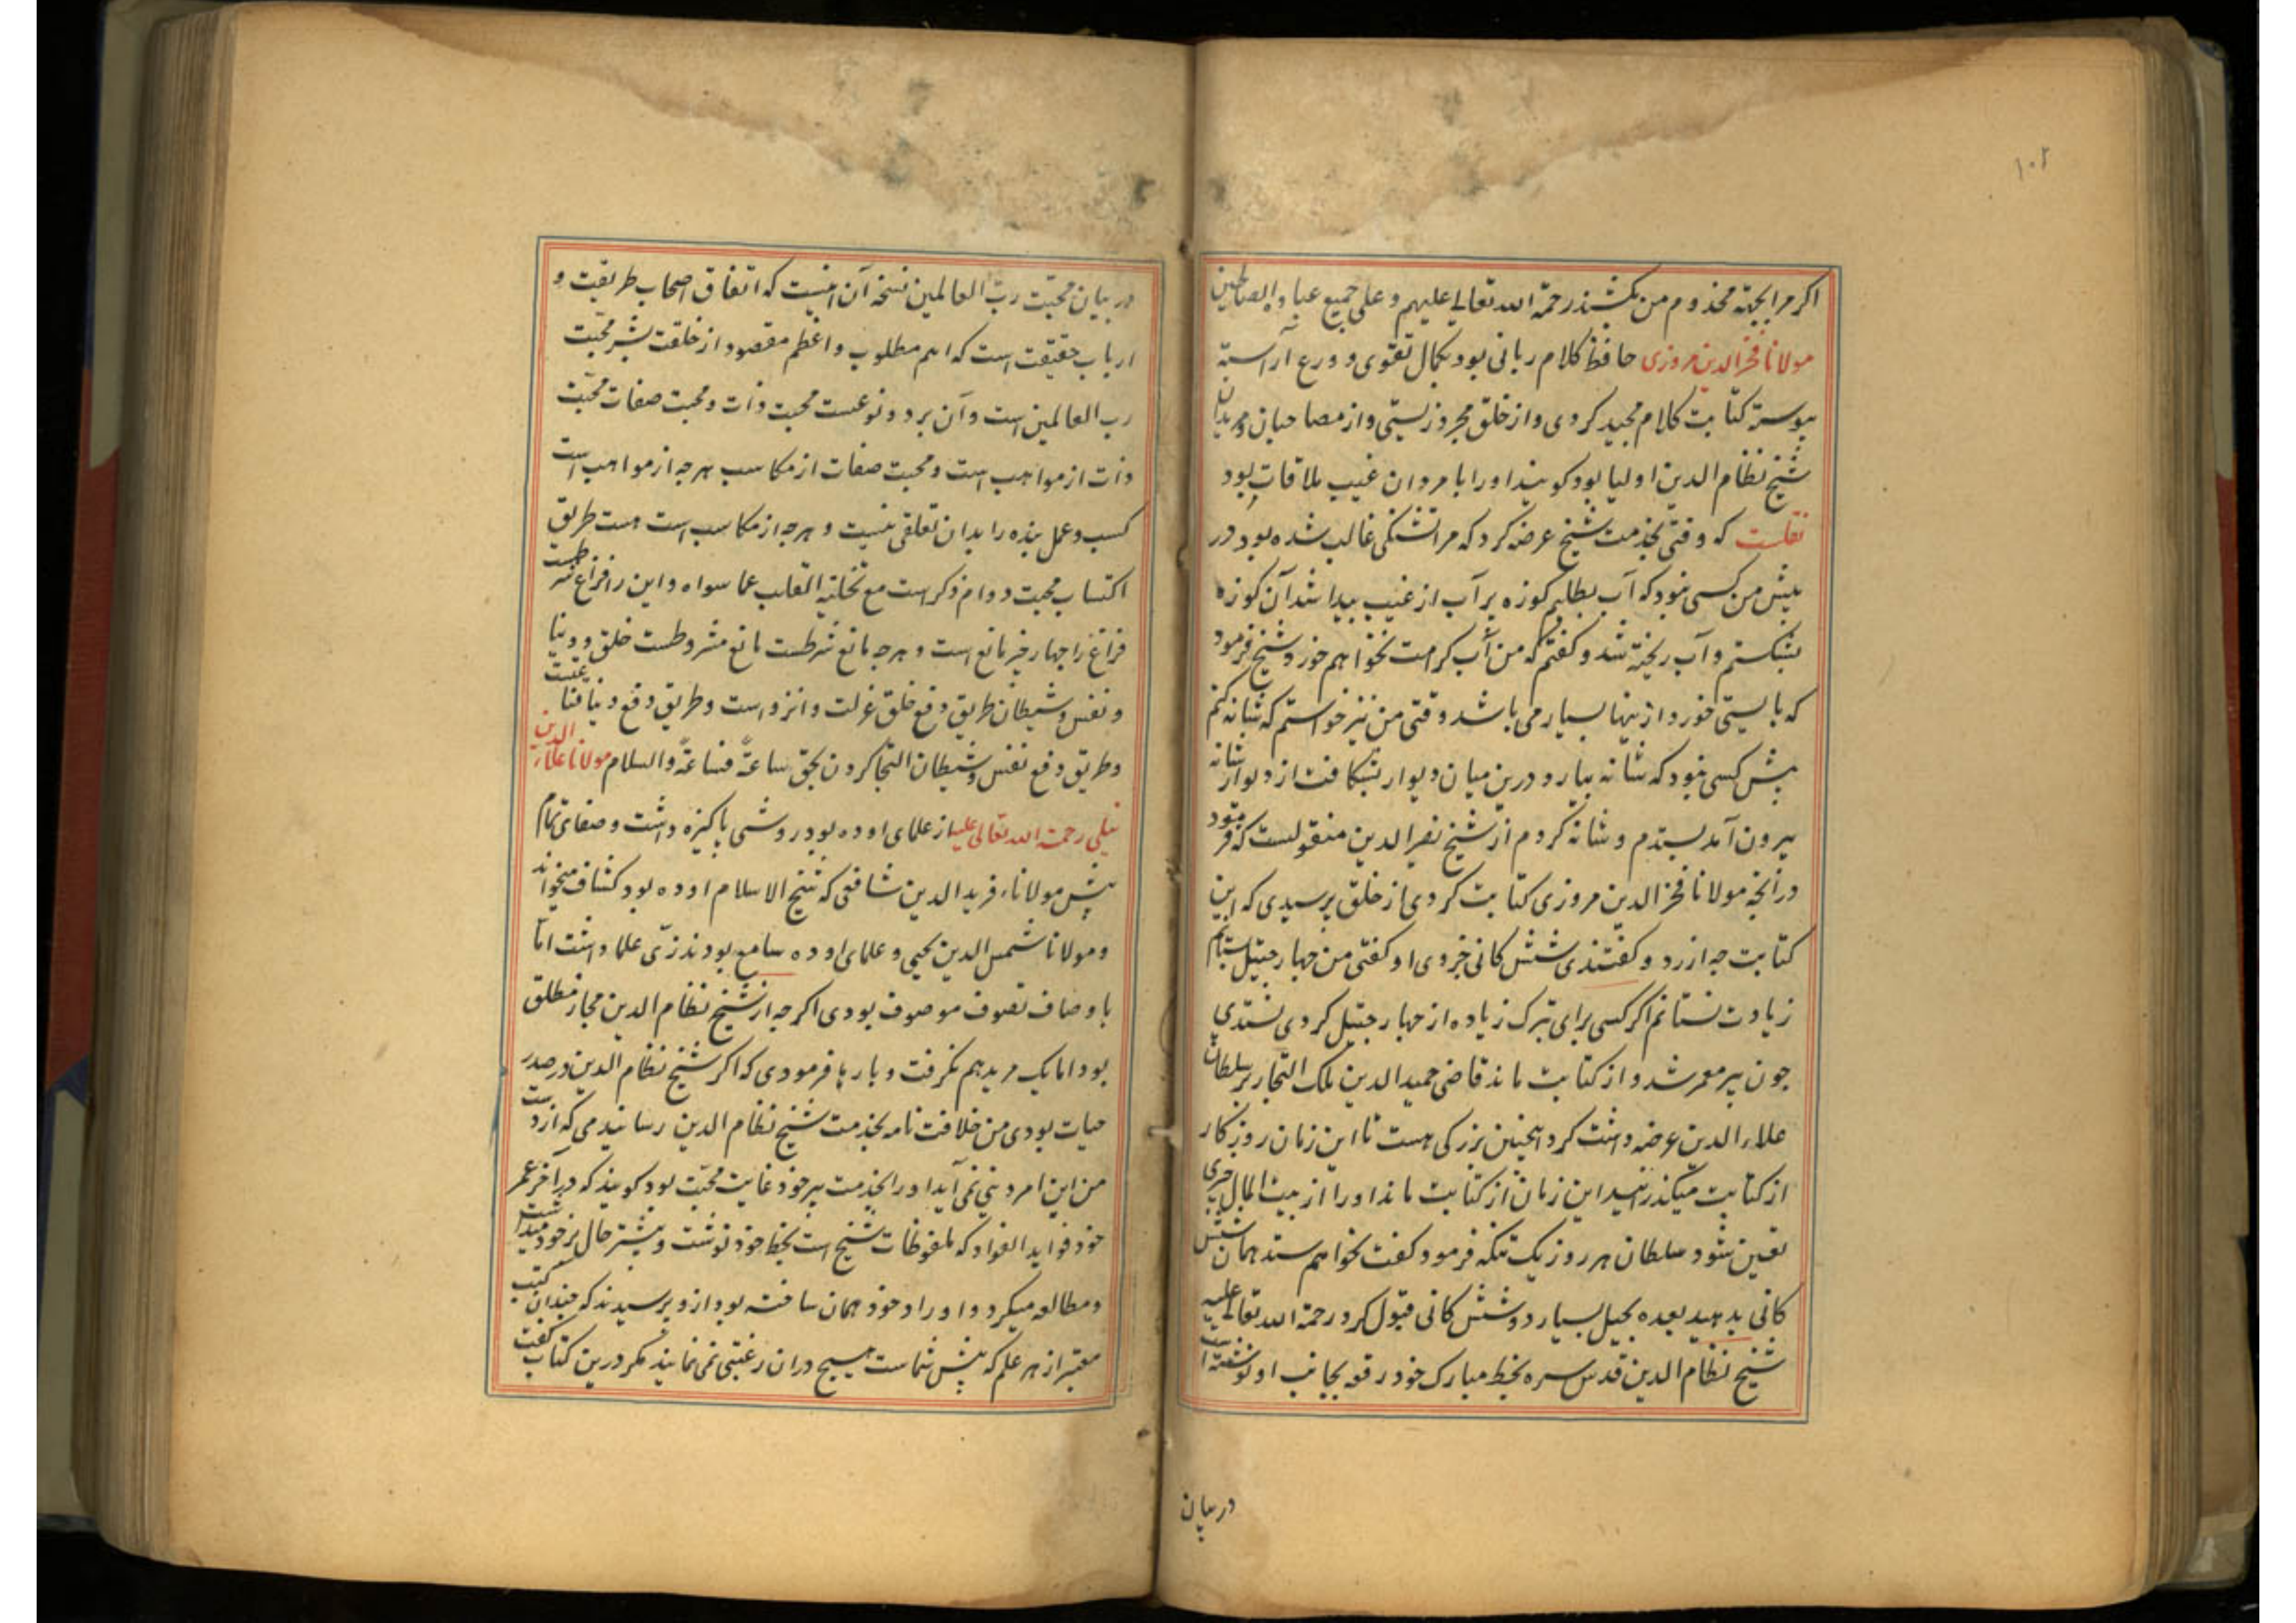 ۱۰۲
اکر مرا بجبّه مخذوم من بکشند رحمة الله تعالی علیهم و علی جمیع عباد الصالحین
مولانا فخر الدین مروزی حافظ کلام ربانی بود بکمال تقوی و ورع آراسته
پیوسته کتابت کلام مجید کردی و از خلق مجرد زیستی و از مصاحبان و مریدان
شیخ نظام الدین اولیا بود کویند او را با مردان غیب ملاقات بود
نقلست که وقتی بخدمت شیخ عرضه کرد که مرا تشنکی غالب شده بود در
پیش من کسی نبود که آب بطلبم کوزه پر آب از غیب پیدا شد آن کوزه
بشکستم و آب ریخته شد و کفتم که من آب کرامت نخواهم خورد شیخ فرمود
که بایستی خورد از ینها بسیار می باشد وقتی من نیز خواستم که شانه کنم
پیش کسی نبود که شانه بیارد درین میان دیوار بشکافت از دیوار شانه
بیرون آمد بستدم و شانه کردم از شیخ نصیر الدین منقولست که فرمود
درآنچه مولانا فخر الدین مروزی کتابت کردی از خلق پرسیدی که این
کتابت چه ارزد و کفتندی شش کانی جزوی او کفتی من چهار جیتل ستانم
زیادت نستانم اکر کسی برای تبرک زیاده از چهار جیتل کردی نستدی
چون پیر معمر شد و از کتابت ماند قاضی حمید الدین ملک التجار بر سلطان
علاء الدین عرضه داشت کرد اینچنین بزرکی هست تا این زمان روزکار
از کتابت میکذرانید این زمان از کتابت ماند او را از بیت المال چیزی
تعین شود سلطان هر روز یک تنکه فرمود کفت نخواهم ستد همان شش
کانی بدهید بعده بحیل بسیار دو شش کانی قبول کرد رحمة الله تعالی علیه
شیخ نظام الدین قدس سره بخط مبارک خود رقعه بجانب او نوشته است
در بیان
در بیان محبّت ربّ العالمین نسخه آن اینست که اتفاق اصحاب طریقت و
ارباب حقیقت است که اهم مطلوب و اعظم مقصود از خلقت بشر محبّت
رب العالمین است و آن بر دو نوعست محبت ذات و محبت صفات محبّت
ذات از مواهب است و محبت صفات از مکاسب هرچه از مواهب است
کسب و عمل بنده را بدان تعلقی نیست و هرچه از مکاسب است هست طریق
اکتساب محبت دوام ذکر است مع تخلیة القلب عما سواه و این را فراغ شرطست
فراغ را چهار چیز مانع است و هرچه مانع شرطست مانع مشروطست خلق و دنیا
و نفس و شیطان طریق دفع خلق عزلت و انزواست و طریق دفع دنیا قناعتست
و طریق دفع نفس و شیطان التجا کردن بحق ساعةً فساعةً والسلام مولانا علاء الدین
نیلی رحمت الله تعالی علیه از علمای اوده بود روشی پاکیزه داشت و صفای تمام
پیش مولاناء فرید الدین شافعی که شیخ الاسلام اوده بود کشاف میخواند
و مولانا شمس الدین یحیی و علمای اوده سامع بودند زیّ علما داشت امّا
باوصاف تصوف موصوف بودی اکرچه از شیخ نظام الدین مجاز مطلق
بود اما یک مرید هم نکرفت و بارها فرمودی که اکر شیخ نظام الدین در صدر
حیات بودی من خلافت نامه بخدمت شیخ نظام الدین رسانیدمی که از دست
من این امر دینی نمی آید او را بخدمت پیر خود غایت محبّت بود کویند که در آخر عمر
خود فواید الفواد که ملفوظات شیخ است بخط خود نوشت و بیشتر حال بر خود میداشت
و مطالعه میکرد و اوراد خود همان ساخته بود ازو پرسیدند که چندان کتب
معتبر از هر علم که پیش شماست هیچ دران رغبتی نمی نمایند مکر درین کتاب کفت